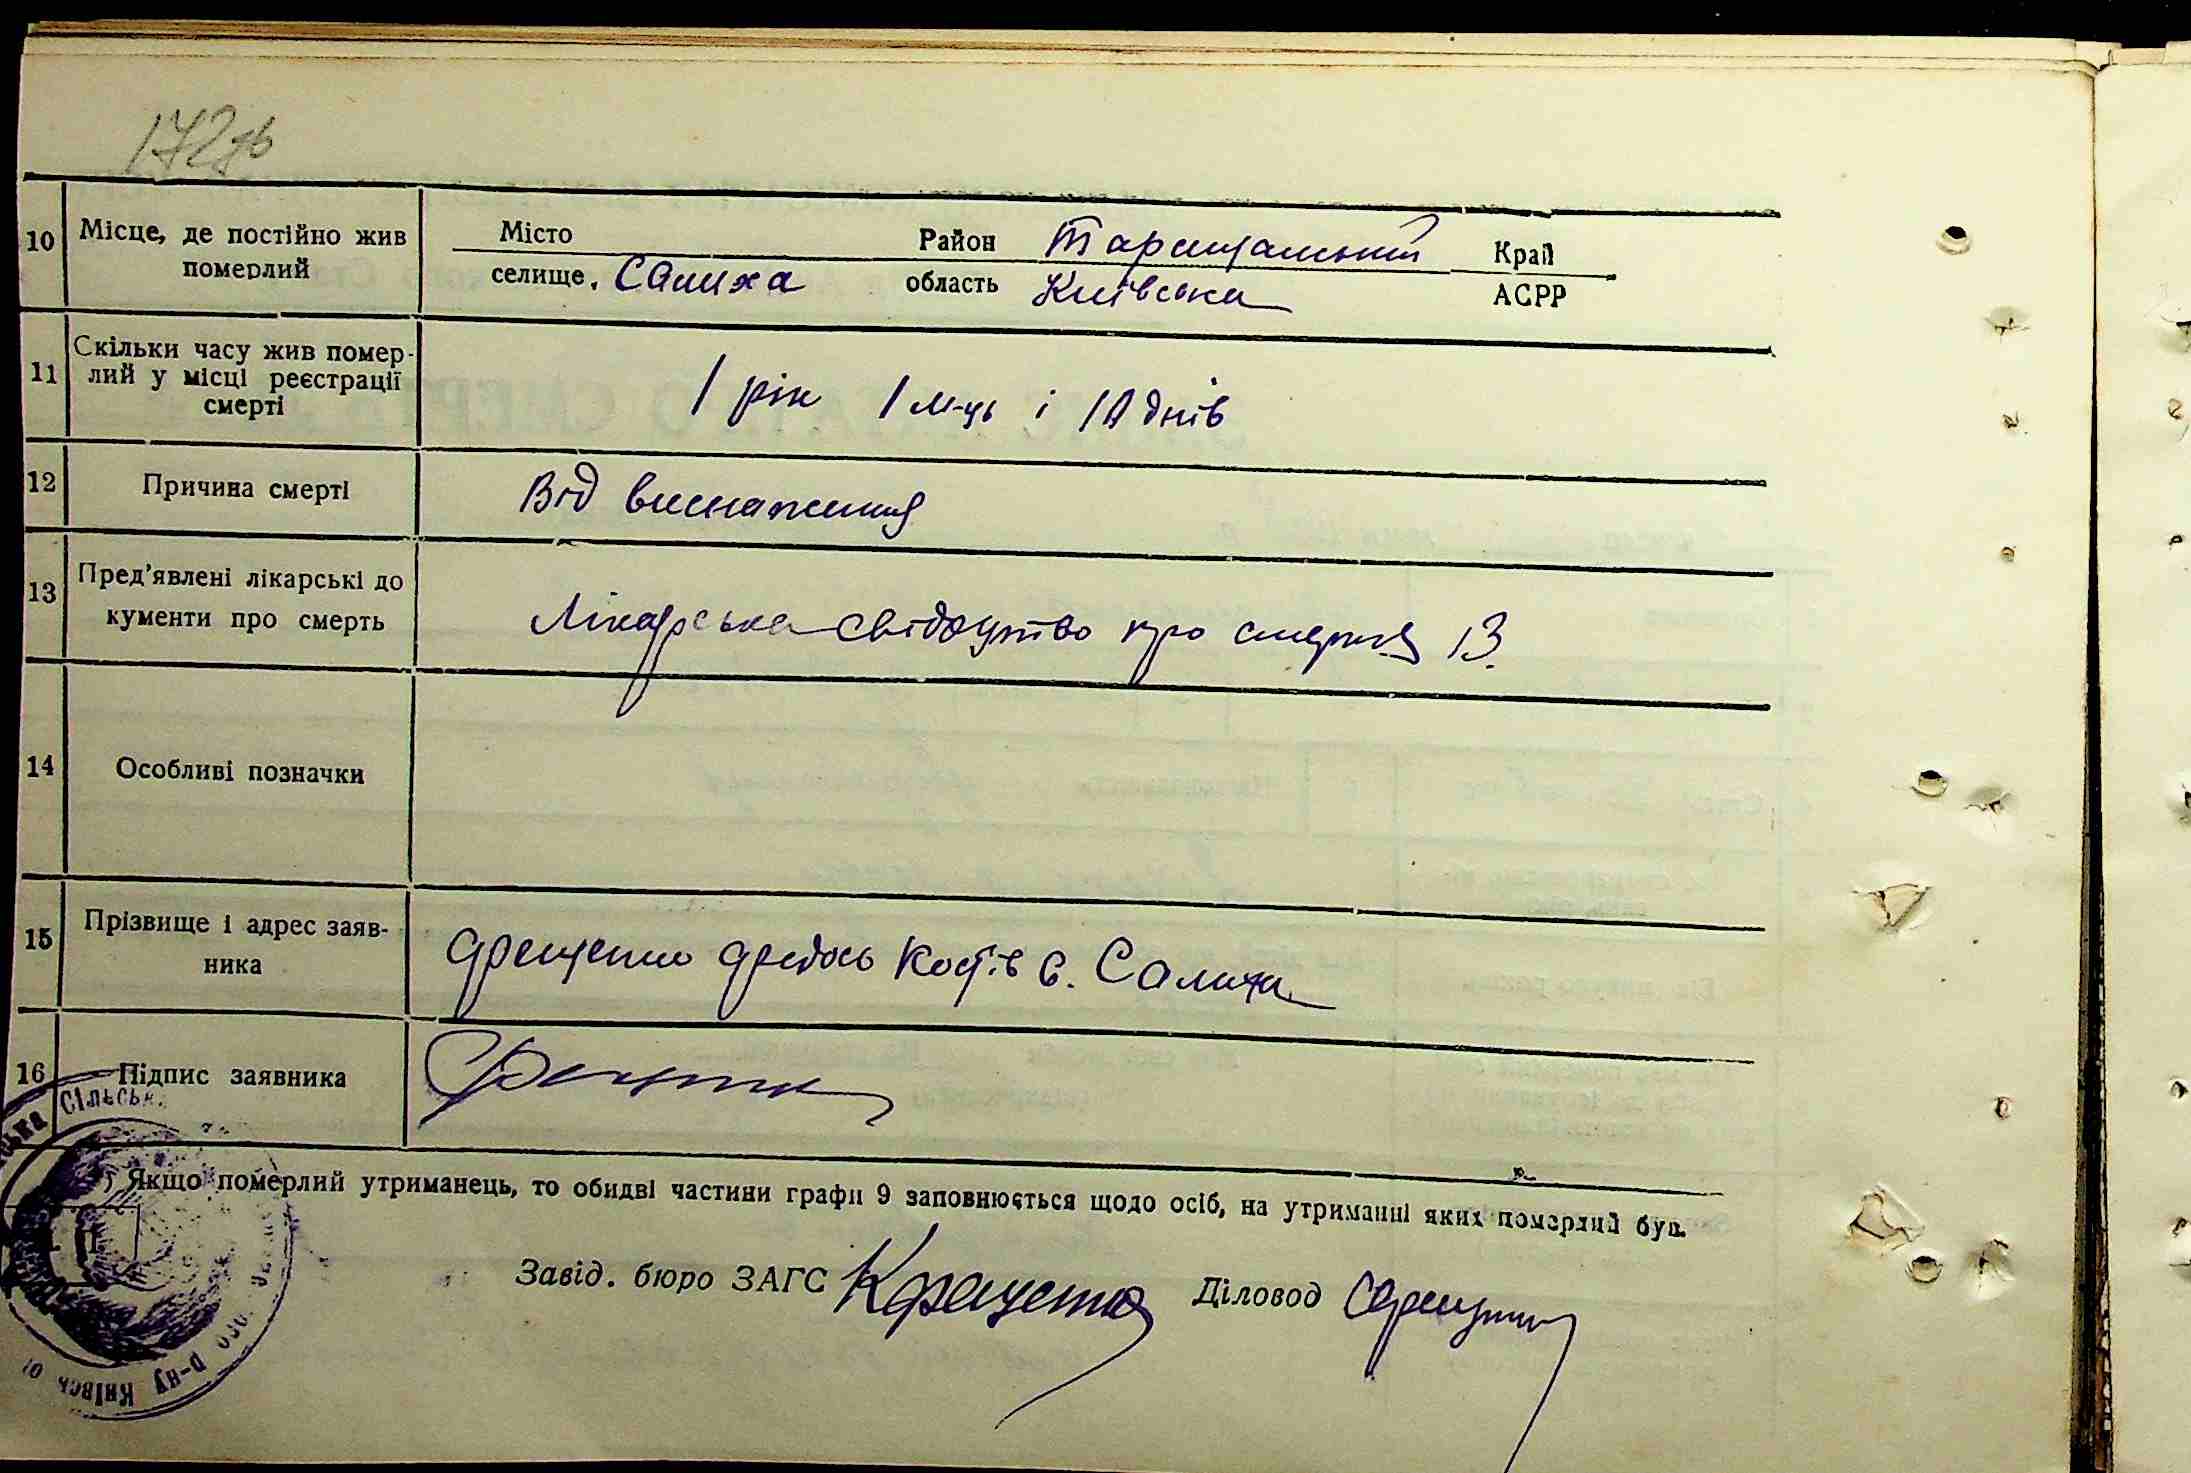 172зв
10 Місце, де постійно жив Місто Район Таращанський Край
померлий селище, Салиха область Київська АСРР
Скільки часу жив помер-
11 лий у місці реєстрації 1 рік 1 м-ць і 10 днів
смерті
12 Причина смерті Від виснаження
13 Пред'явлені лікарські до
кументи про смерть Лікарська свідоцтво про смерть 13.
14 Особливі позначки
15 Прізвище і адрес заяв- Салиха
ника
16 Підпис заявника
Якщо померлий утриманець, то обидві частини графи 9 заповнюється щодо осіб, на утриманні яких померлий був.
Завід. бюро ЗАГС Діловод
СІЛЬСЬК.
Р-ну Київсь